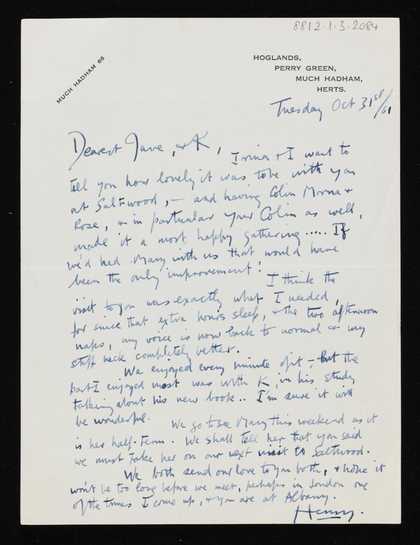 8812.1.3.2084
MUCH HADHAM 66
HOGLANDS,
PERRY GREEN,
MUCH HADHAM,
HERTS.
Tuesday Oct 31st/61
Dearest Jane, & K,
Irina & I want to
tell you how lovely it was to be with you
at Saltwood, — and having Colin &
Rose, & in particular your Colin as well,
made it a most happy gathering ..... If
we'd had Mary with us that would have
been the only improvement!
I think the
visit to you was exactly what I needed
for since that extra hours sleep, & the two afternoon
naps, my voice is now back to normal & my
stiff neck completely better.
We enjoyed every minute of it, – but the
part I enjoyed most was with K, in his study
talking about his new book.. I'm sure it will
be wonderful. We go to see Mary this weekend as it
is her half-term. We shall tell her that you said
we must take her on our next visit to Saltwood.
We both send our love to you both, & hope it
won't be too long before we meet, perhaps in London one
of the times I come up, & you are at Albany.
Henry